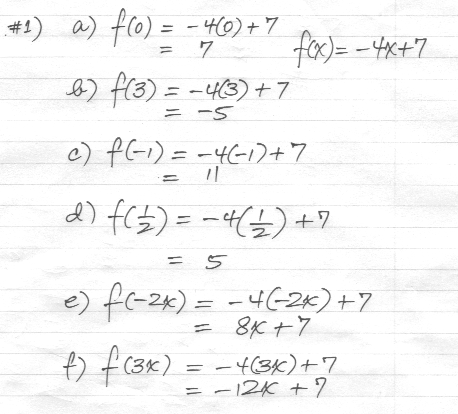 #1) a) f(0) = -4(0) + 7
= 7
f(x) = -4x+7
b) f(3) = -4(3) + 7
= -5
c) f(-1) = -4(-1) + 7
= 11
d) f(1/2) = -4(1/2) + 7
= 5
e) f(-2x) = -4(-2x) + 7
= 8x + 7
f) f(3x) = -4(3x) + 7
= -12x + 7